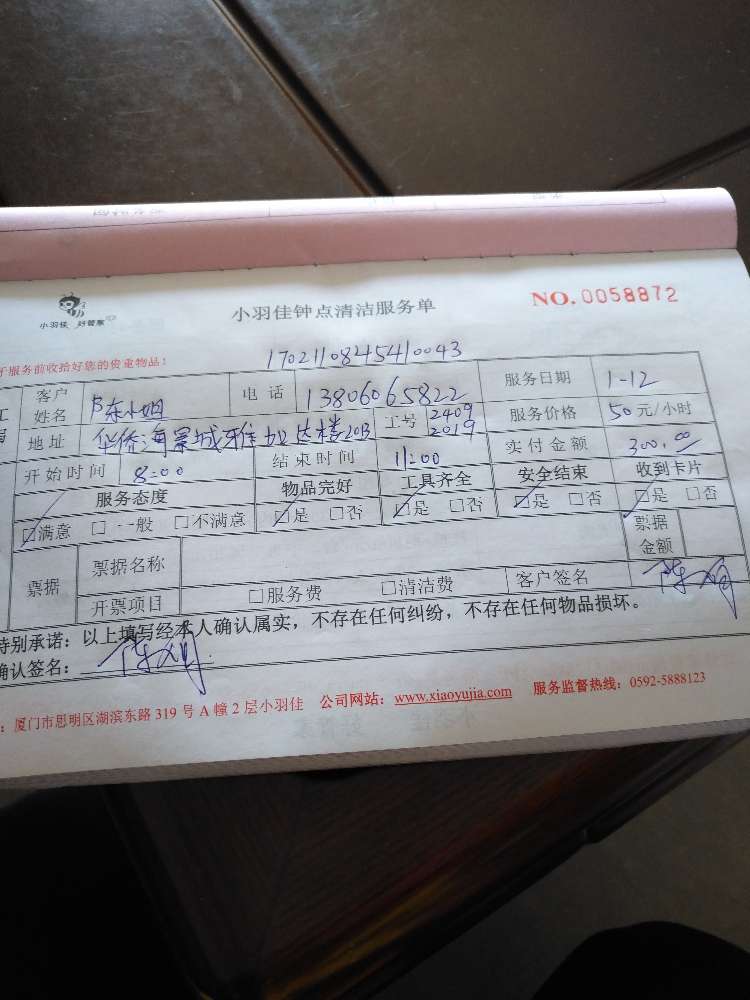 小羽佳 好管家
小羽佳钟点清洁服务单
NO.0058872
于服务前收拾好您的贵重物品!
1702110845410043
客户姓名 陈小姐 电话 13806065822 服务日期 1-12
地址 华侨海景城雅加达楼20B 工号 2409 2019 服务价格 50元/小时
开始时间 8:00 结束时间 11:00 实付金额 300.00
服务态度 物品完好 工具齐全 安全结束 收到卡片
☑满意 □一般 □不满意 ☑是 □否 ☑是 □否 ☑是 □否 ☑是 □否
票据 票据名称 票据金额
开票项目 □服务费 □清洁费 客户签名
特别承诺:以上填写经本人确认属实,不存在任何纠纷,不存在任何物品损坏。
确认签名:
:厦门市思明区湖滨东路319号A幢2层小羽佳 公司网站:www.xiaoyujia.com 服务监督热线:0592-5888123